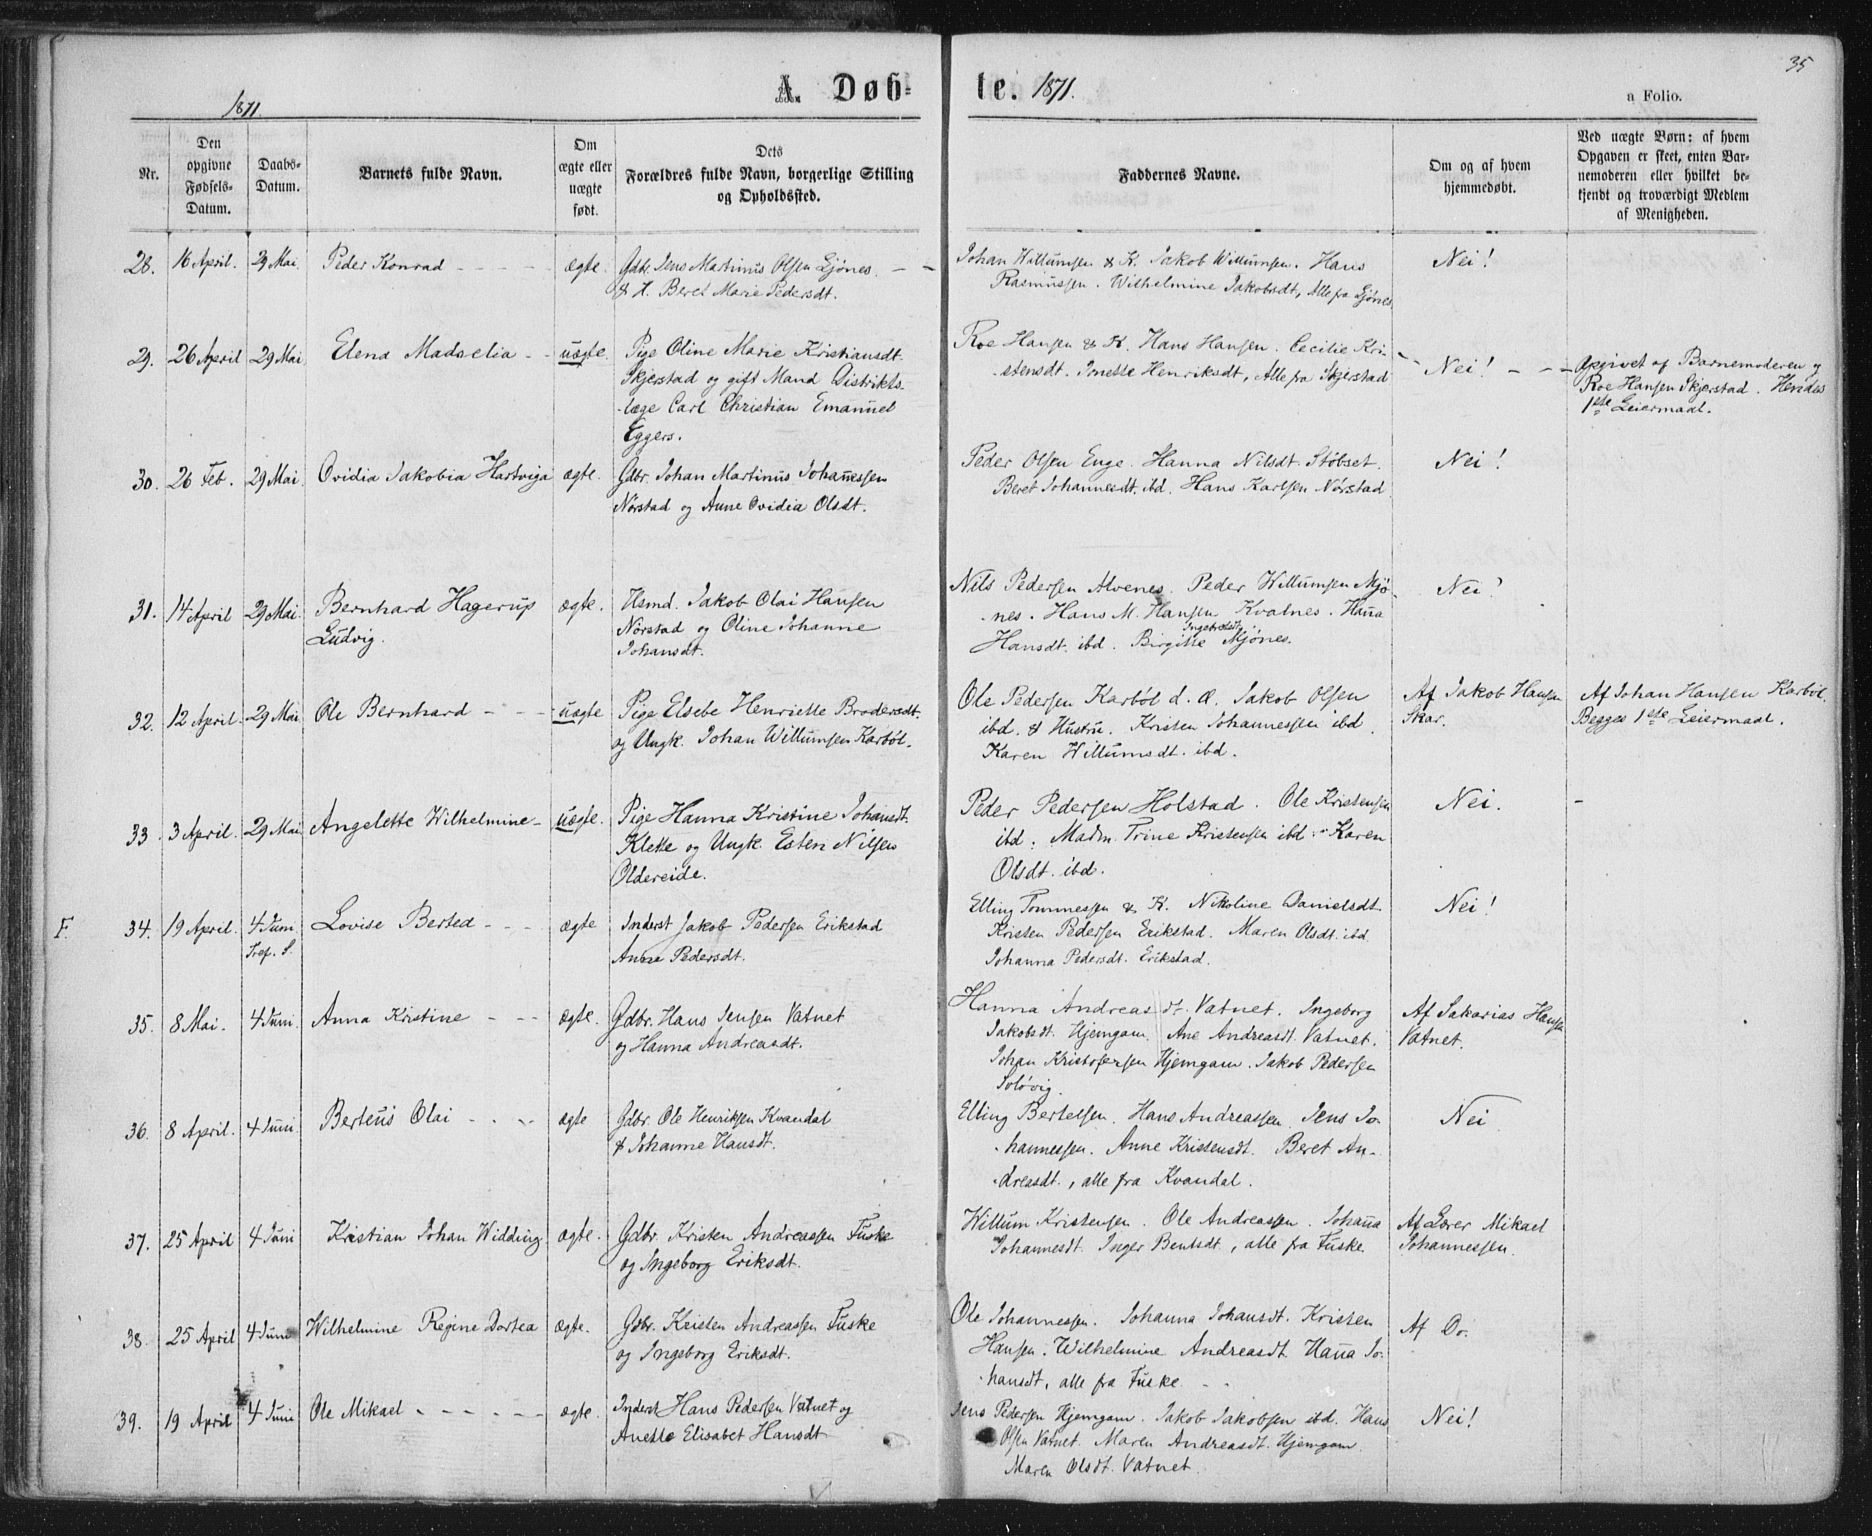 35
A. Døbte. 1871.
1871
a Folio.
Nr.
Den opgivne Fødsels-Datum.
Daabs-Datum.
Barnets fulde Navn.
Om ægte eller uægte født.
Dets Forældres fulde Navn, borgerlige Stilling og Opholdssted.
Faddernes Navne.
Om og af hvem hjemmedøbt.
Ved uægte Børn: af hvem Opgaven er skeet, enten Barnemoderen eller hvilket bekjendt og troværdigt Medlem af Menigheden.
28. 16 April. 29 Mai Peder Konrad - - - - ægte. Gdbr. Jens Martinus Olsen Ljønes. - -
& H. Beret Marie Pedersdt.
Johan Willumsen & K. Jakob Willumsen. Hans
Rasmussen. Wilhelmine Jakobsdt, Alle fra Ljønes
Nei!
29. 26 April 29 Mai Elena Madselia - - uægte. Pige Oline Marie Kristiansdt.
Skjerstad og gift Mand Distrikts
-læge Carl Christian Emanuel
Eggers.
Roe Hansen & K. Hans Hansen. Cecilie Kri-
-stensdt. Anette Henriksdt, Alle fra Skjerstad
Nei! - - -
Opgivet af Barnemoderen og
Roe Hansen Skjerstad. Hendes
1ste Leiermaal.
30. 26 Feb. 29 Mai Ovidia Jakobia Hartviga ægte. Gdbr Johan Martinus Johanessen
Nørstad og Anne Ovidia Olsdt.
Peder Olsen Enge. Hanna Nilsdt. Støbset.
Beret Johannesdt. ibd. Hans Karlsen Nørstad
Nei!
31. 14 April 29 Mai. Bernhard Hagerup
Ludvig.
ægte. Husmd. Jakob Olai Hansen
Nørstad og Oline Johanne
Johansdt.
Nils Pedersen Alvenes. Peder Willumsen Mjø-
-nes. Hans M. Hansen Kvalnes. Hana
Ingebretsdt
Hansdt. ibd. Birgitte Mjønes.
Nei!
32. 12 April. 29 Mai Ole Bernhard - - - uægte Pige Elsebe Henriette Brodersdt.
og Ungk. Johan Willumsen Karbøl.
Ole Pedersen Karbøl d. æ. Jakob Olsen
ibd. & Hustru. Kristen Johannessen ibd.
Karen Willumsdt. ibd.
Af Jakob Hansen
Skar.
Af Johan Hansen Karbøl.
Begges 1ste Leiermaal.
33. 3 April. 29 Mai Angelette Wilhelmine - uægte. Pige Hanna Kristine Johansdt.
Klette og Ungk. Esten Nilsen
Oldereide.
Peder Pedersen Holstad. Ole Kristensen
ibd. Madm. Trine Kristensen ibd. Karen
Olsdt. ibd.
Nei. -
F. 34. 19 April. 4 Juni
Tref. S.
Lovise Berted - - - ægte Inderst Jakob Pedersen Erikstad
Anna Pedersdt.
Elling Tønnessen & K. Nikoline Danielsdt.
Kristen Pedersen Erikstad. Maren Olsdt. ibd
Johanna Pedersdt. Erikstad.
Nei!
35. 8 Mai. 4 Juni Anna Kristine - - - ægte. Gdbr. Hans Jensen Vatnet
og Hanna Andreasdt.
Hanna Andreasdt. Vatnet. Ingeborg
Jakobsdt. Hjemgam. Ane Andreasdt. Vatnet.
Johan Kristofersen Hjemgam. Jakob Pedersen
Soløvig.
Af Sakarias Hansen
Vatnet.
36. 8 April. 4 Juni Berteus Olai - - - ægte Gdbr. Ole Henriksen Kvandal
& Johanne Hansdt.
Elling Bertelsen. Hans Andreassen. Jens Jo-
-hannessen. Anne Kristensdt. Beret An-
-dreasdt., alle fra Kvandal.
Nei
37. 25 April 4 Juni Kristian Johan Widding ægte. Gdbr. Kristen Andreassen Fuske
og Ingeborg Eriksdt.
Willum Kristensen. Ole Andreassen. Johana
Johannesdt. Inger Bentsdt., alle fra Fuske
Af Lærer Mikael
Johannessen.
38. 25 April 4 Juni Wilhelmine Regine Dortea ægte. Gdbr. Kristen Andreassen Fuske
og Ingeborg Eriksdt.
Ole Johannessen. Johanna Johansdt. Kristen
Hansen. Wilhelmine Andreasdt. Hana Jo-
-hansdt, alle fra Fuske - -
Af Do.
39. 19 April 4 Juni Ole Mikael - - - - - ægte. Inderst Hans Pedersen Vatnet og
Anette Elisabet Hansdt
Jens Pedersen Hjemgam. Jakob Jakobsen ibd. Hans
Olsen Vatnet. Maren Andreasdt. Hjemgam.
Maren Olsdt. Vatnet.
Nei!